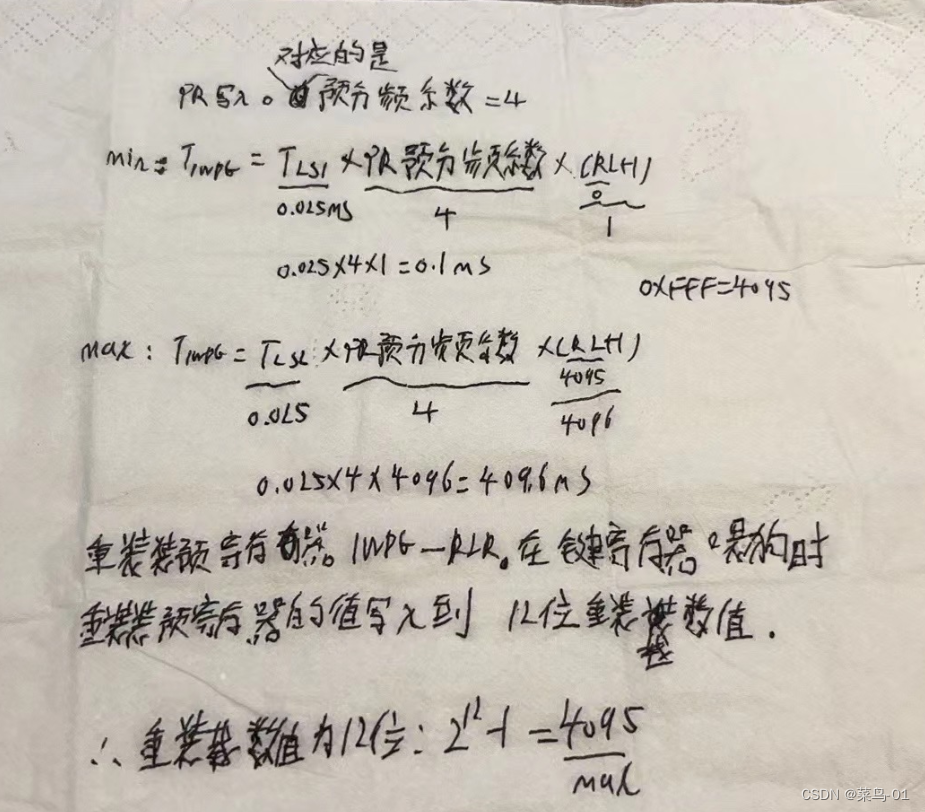 对应的是
PR写入0 预分频系数=4
min: TIWDG = TLSI × PR预分频系数 × (RL+1)
0.025ms 4 0
1
0.025×4×1=0.1ms
0XFFF=4095
max: TIWDG = TLSI × PR预分频系数 ×(RL+1)
4095
0.025 4 4096
0.025×4×4096=409.6ms
重装载预寄存器。IWDG-RLR。在键寄存器 喂狗时
重装载预寄存器的值写入到 12位重装载数值.
∴重装载数值为12位: 2¹²-1 = 4095
max
CSDN @菜鸟-01